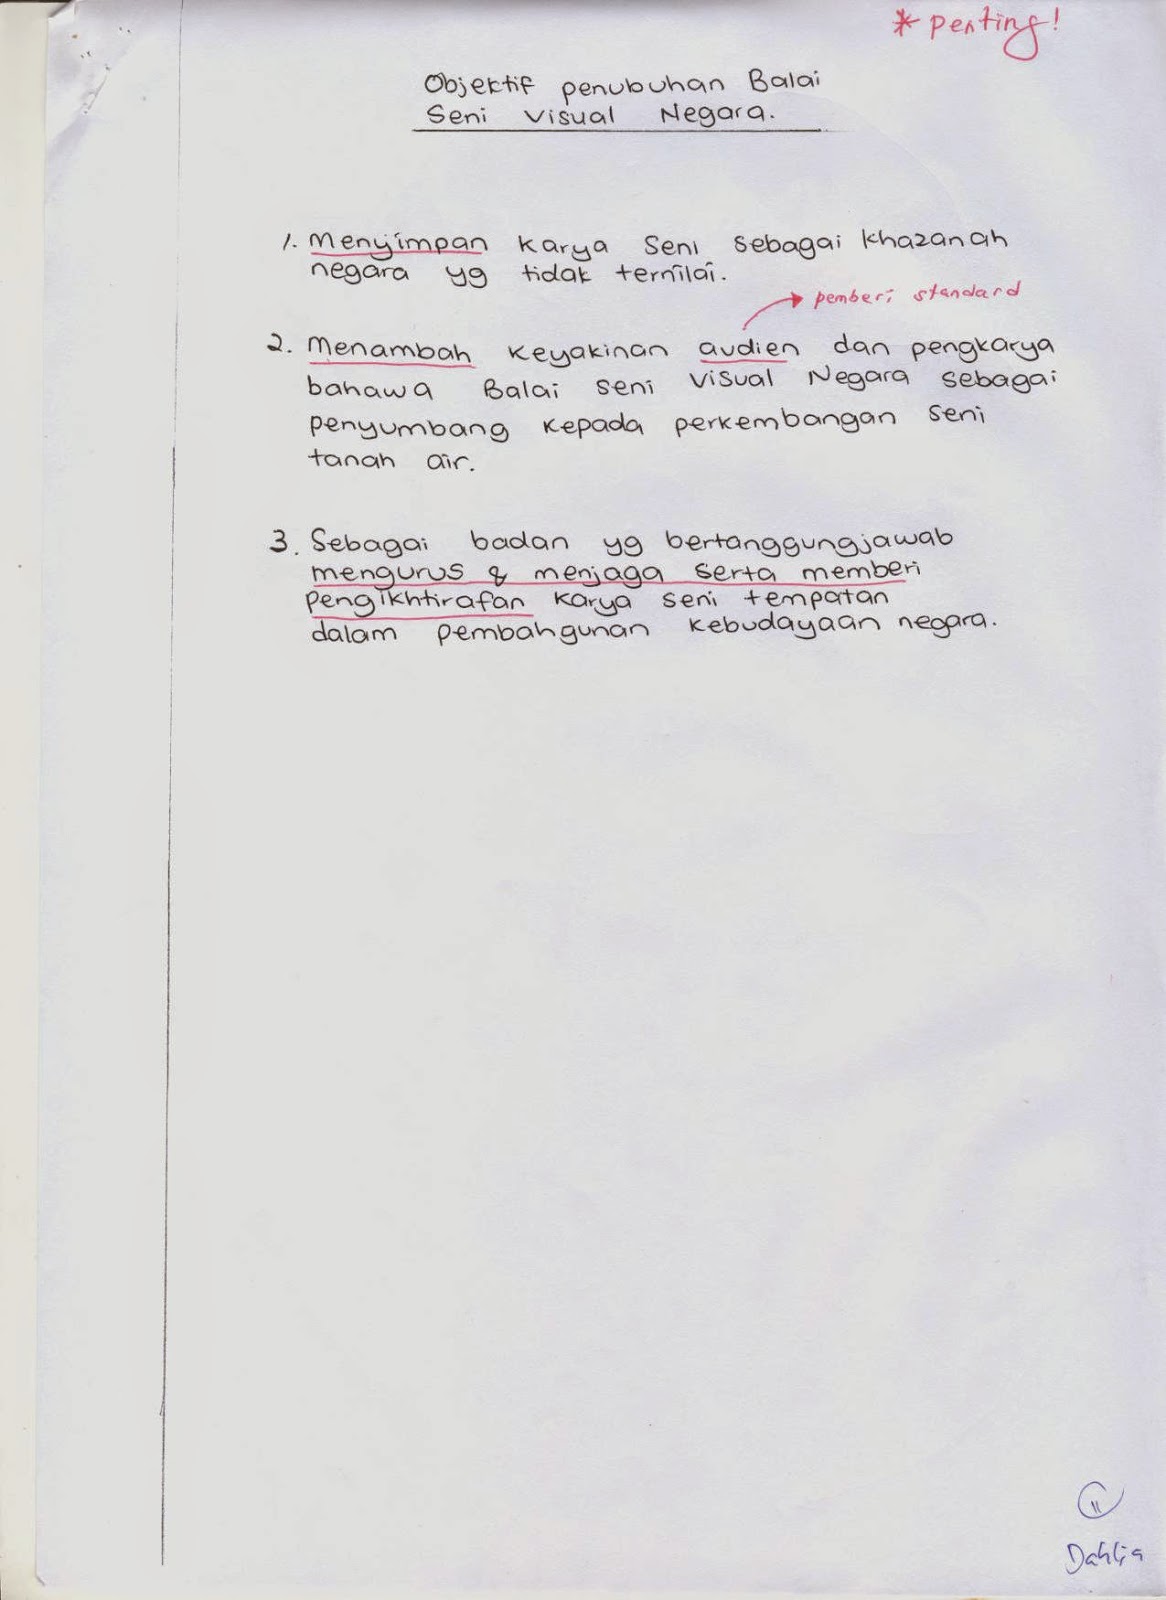 * penting!
Objektif penubuhan Balai
Seni Visual Negara.
1. Menyimpan karya seni sebagai khazanah
negara yg tidak ternilai.
pemberi standard
2. Menambah keyakinan audien dan pengkarya
bahawa Balai seni visual Negara sebagai
penyumbang kepada perkembangan seni
tanah air.
3. Sebagai badan yg bertanggungjawab
mengurus & menjaga serta memberi
pengikhtirafan karya seni tempatan
dalam pembahgunan kebudayaan negara.
11
Dahlia